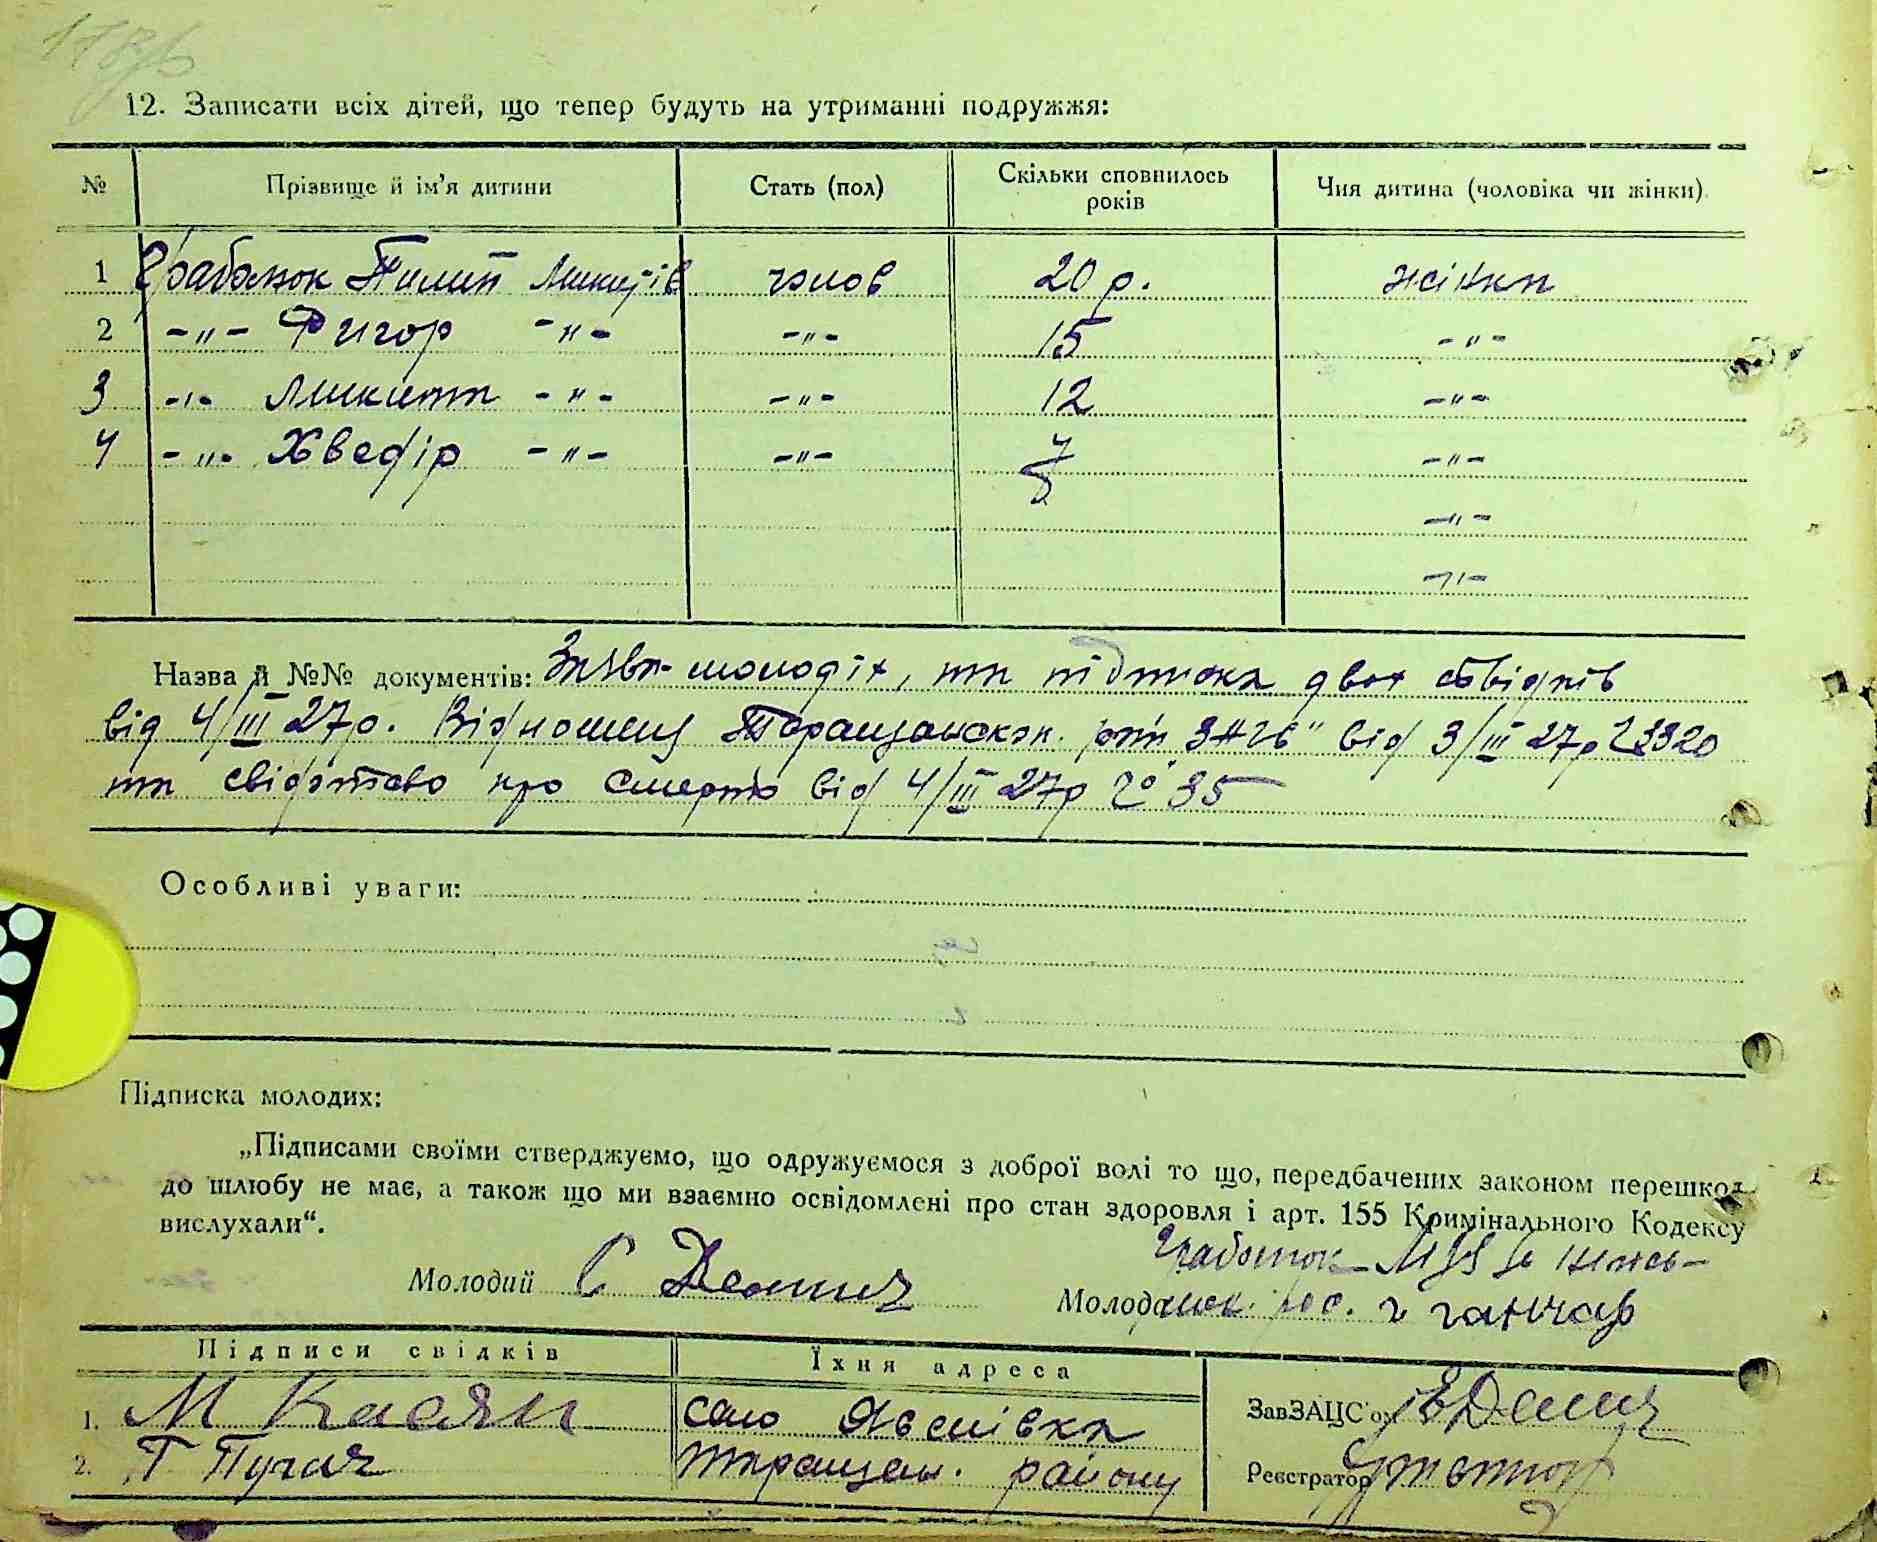 12. Записати всіх дітей, що тепер будуть на утриманні подружжя:
№ Прізвище й ім’я дитини Стать (пол) Скільки сповнилось років Чия дитина (чоловіка чи жінки)
1 Пилип Микитів чолов 20 р. жінки
2 -„- Григор -„- -„- 15 -„-
3 -„- Микита -„- -„- 12 -„-
4 -„- Хведір -„- -„- 7 -„-
-„-
-„-
Назва й №№ документів: Заява молодіх, та підписка двох свідків
від 4/III 27р. Відношення Таращанськ. від 3/III 27р 3320
та свідотство про смерть від 4/III 27р № 35
Особливі уваги:
Підписка молодих:
„Підписами своїми стверджуємо, що одружуємося з доброї волі то що, передбачених законом перешкод
до шлюбу не має, а також що ми взаємно освідомлені про стан здоровля і арт. 155 Кримінального Кодексу
вислухали“.
Молодий С
Молода гончар
Підписи свідків Їхня адреса
1. М Касян село
ЗавЗАЦС’ом
2. Г Пугач Таращан. району
Реєстратор